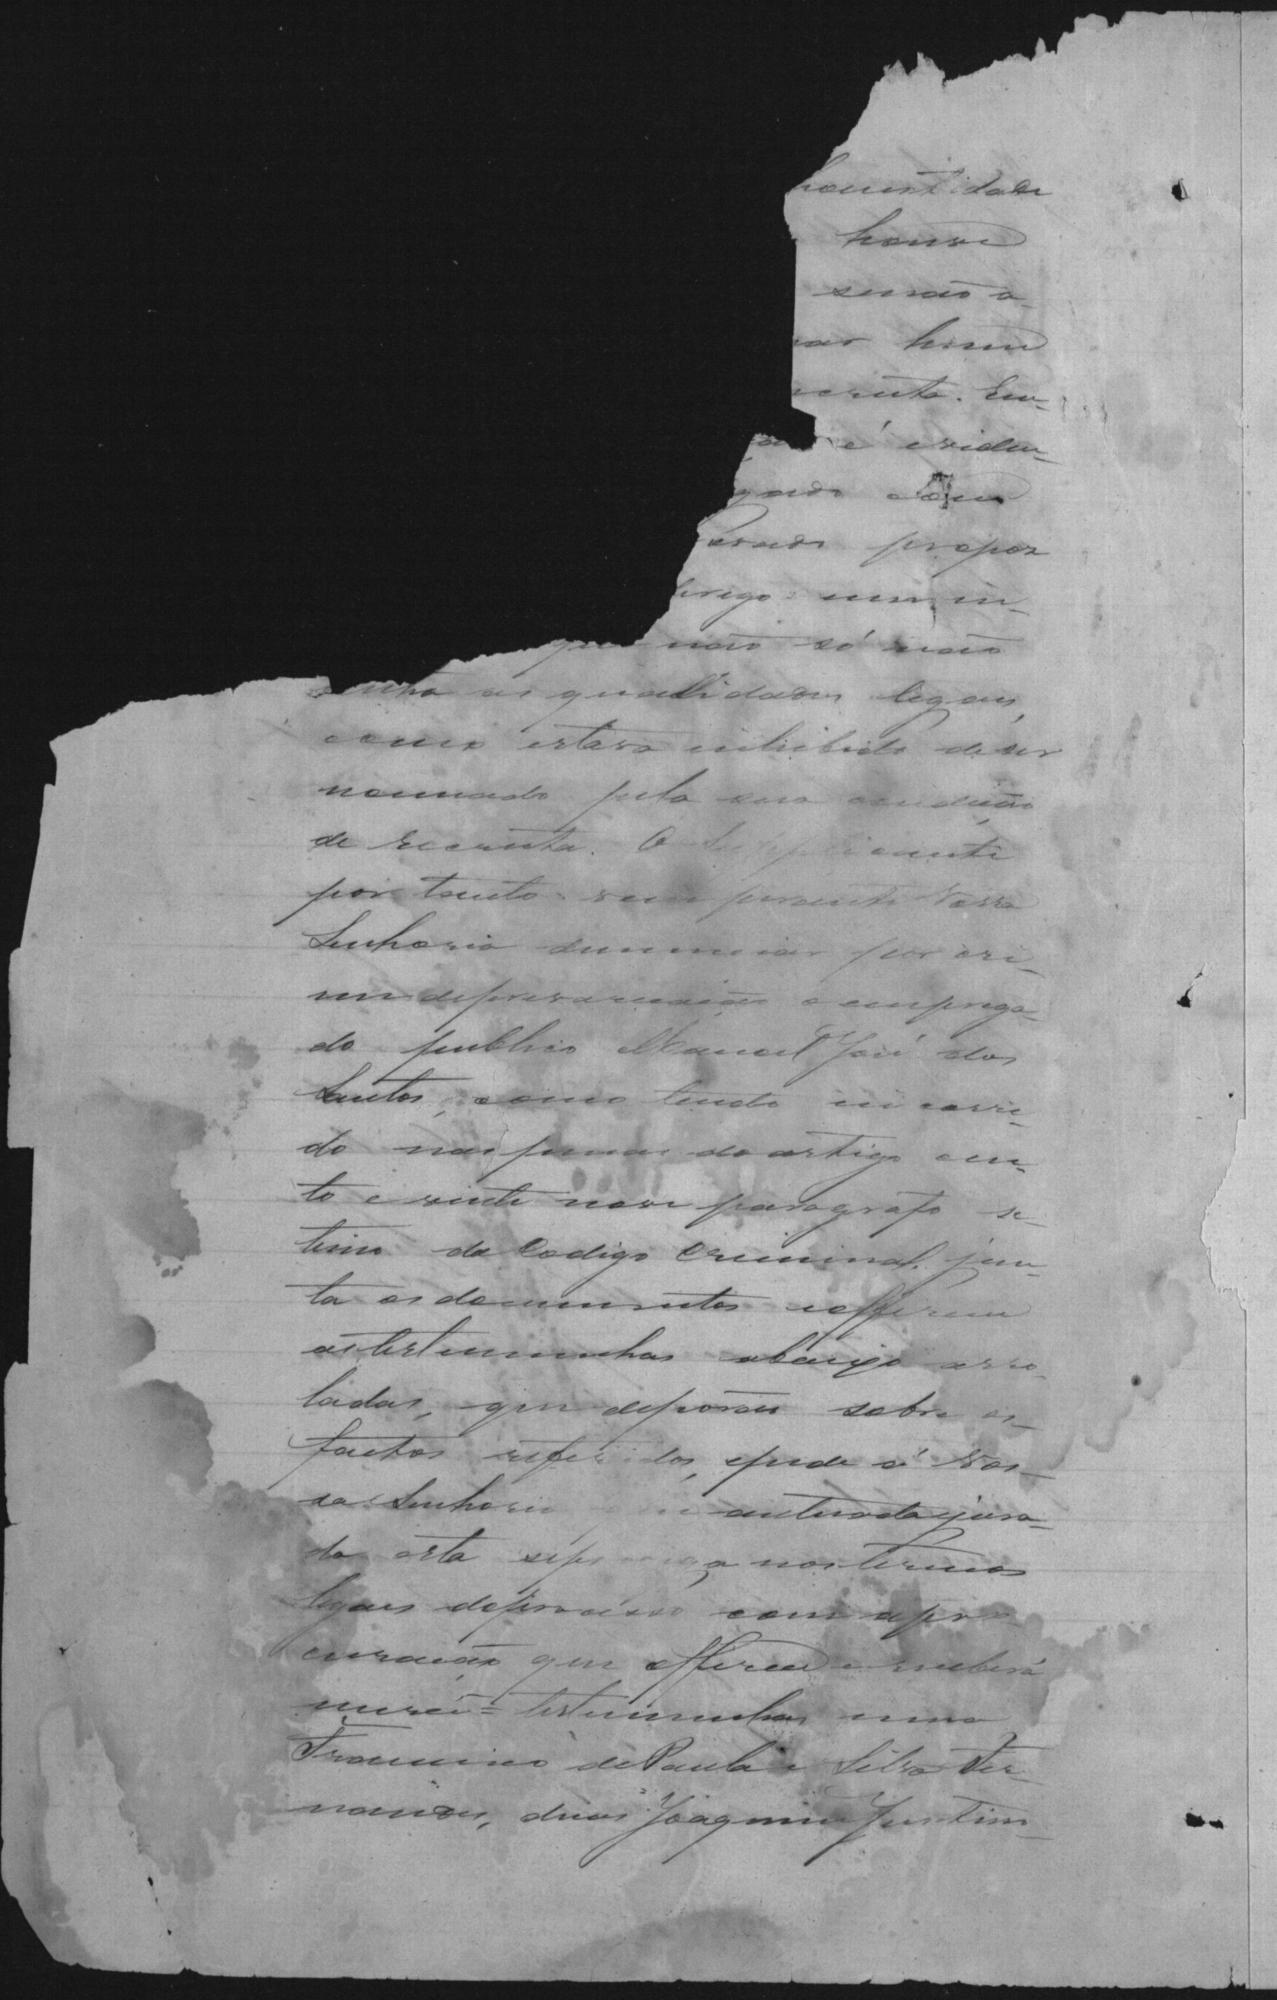 honestidade
houve
senão a
var hum
recruta. Em-
é eviden-
gado com
vado propor
prego um in-
que não só não
tinha as qualidades legaes,
como estava inhibido de ser
nomeado pela sua condição
de recruta. O Supplicante
por tanto vem perante Vossa
Senhoria denunciar por cri-
me de prevaricação o emprega-
do publico Manoel José dos
Santos, como tendo incorri-
do nas penas do artigo cen-
to e vinte nove paragrafo se-
timo do Codigo Criminal, jun-
ta os documentos e offerece
as testemunhas abaixo arro-
ladas, que deporão sobre os
factos referidos, e pede á Vos-
sa Senhoria que autuada e jura-
da esta se nos termos
legaes do processo com a pro-
curação que offerece e receberá
mercê = testemunhas uma
Francisco de Paula e Silva Fer-
nandes, duas Joaquim Justini-